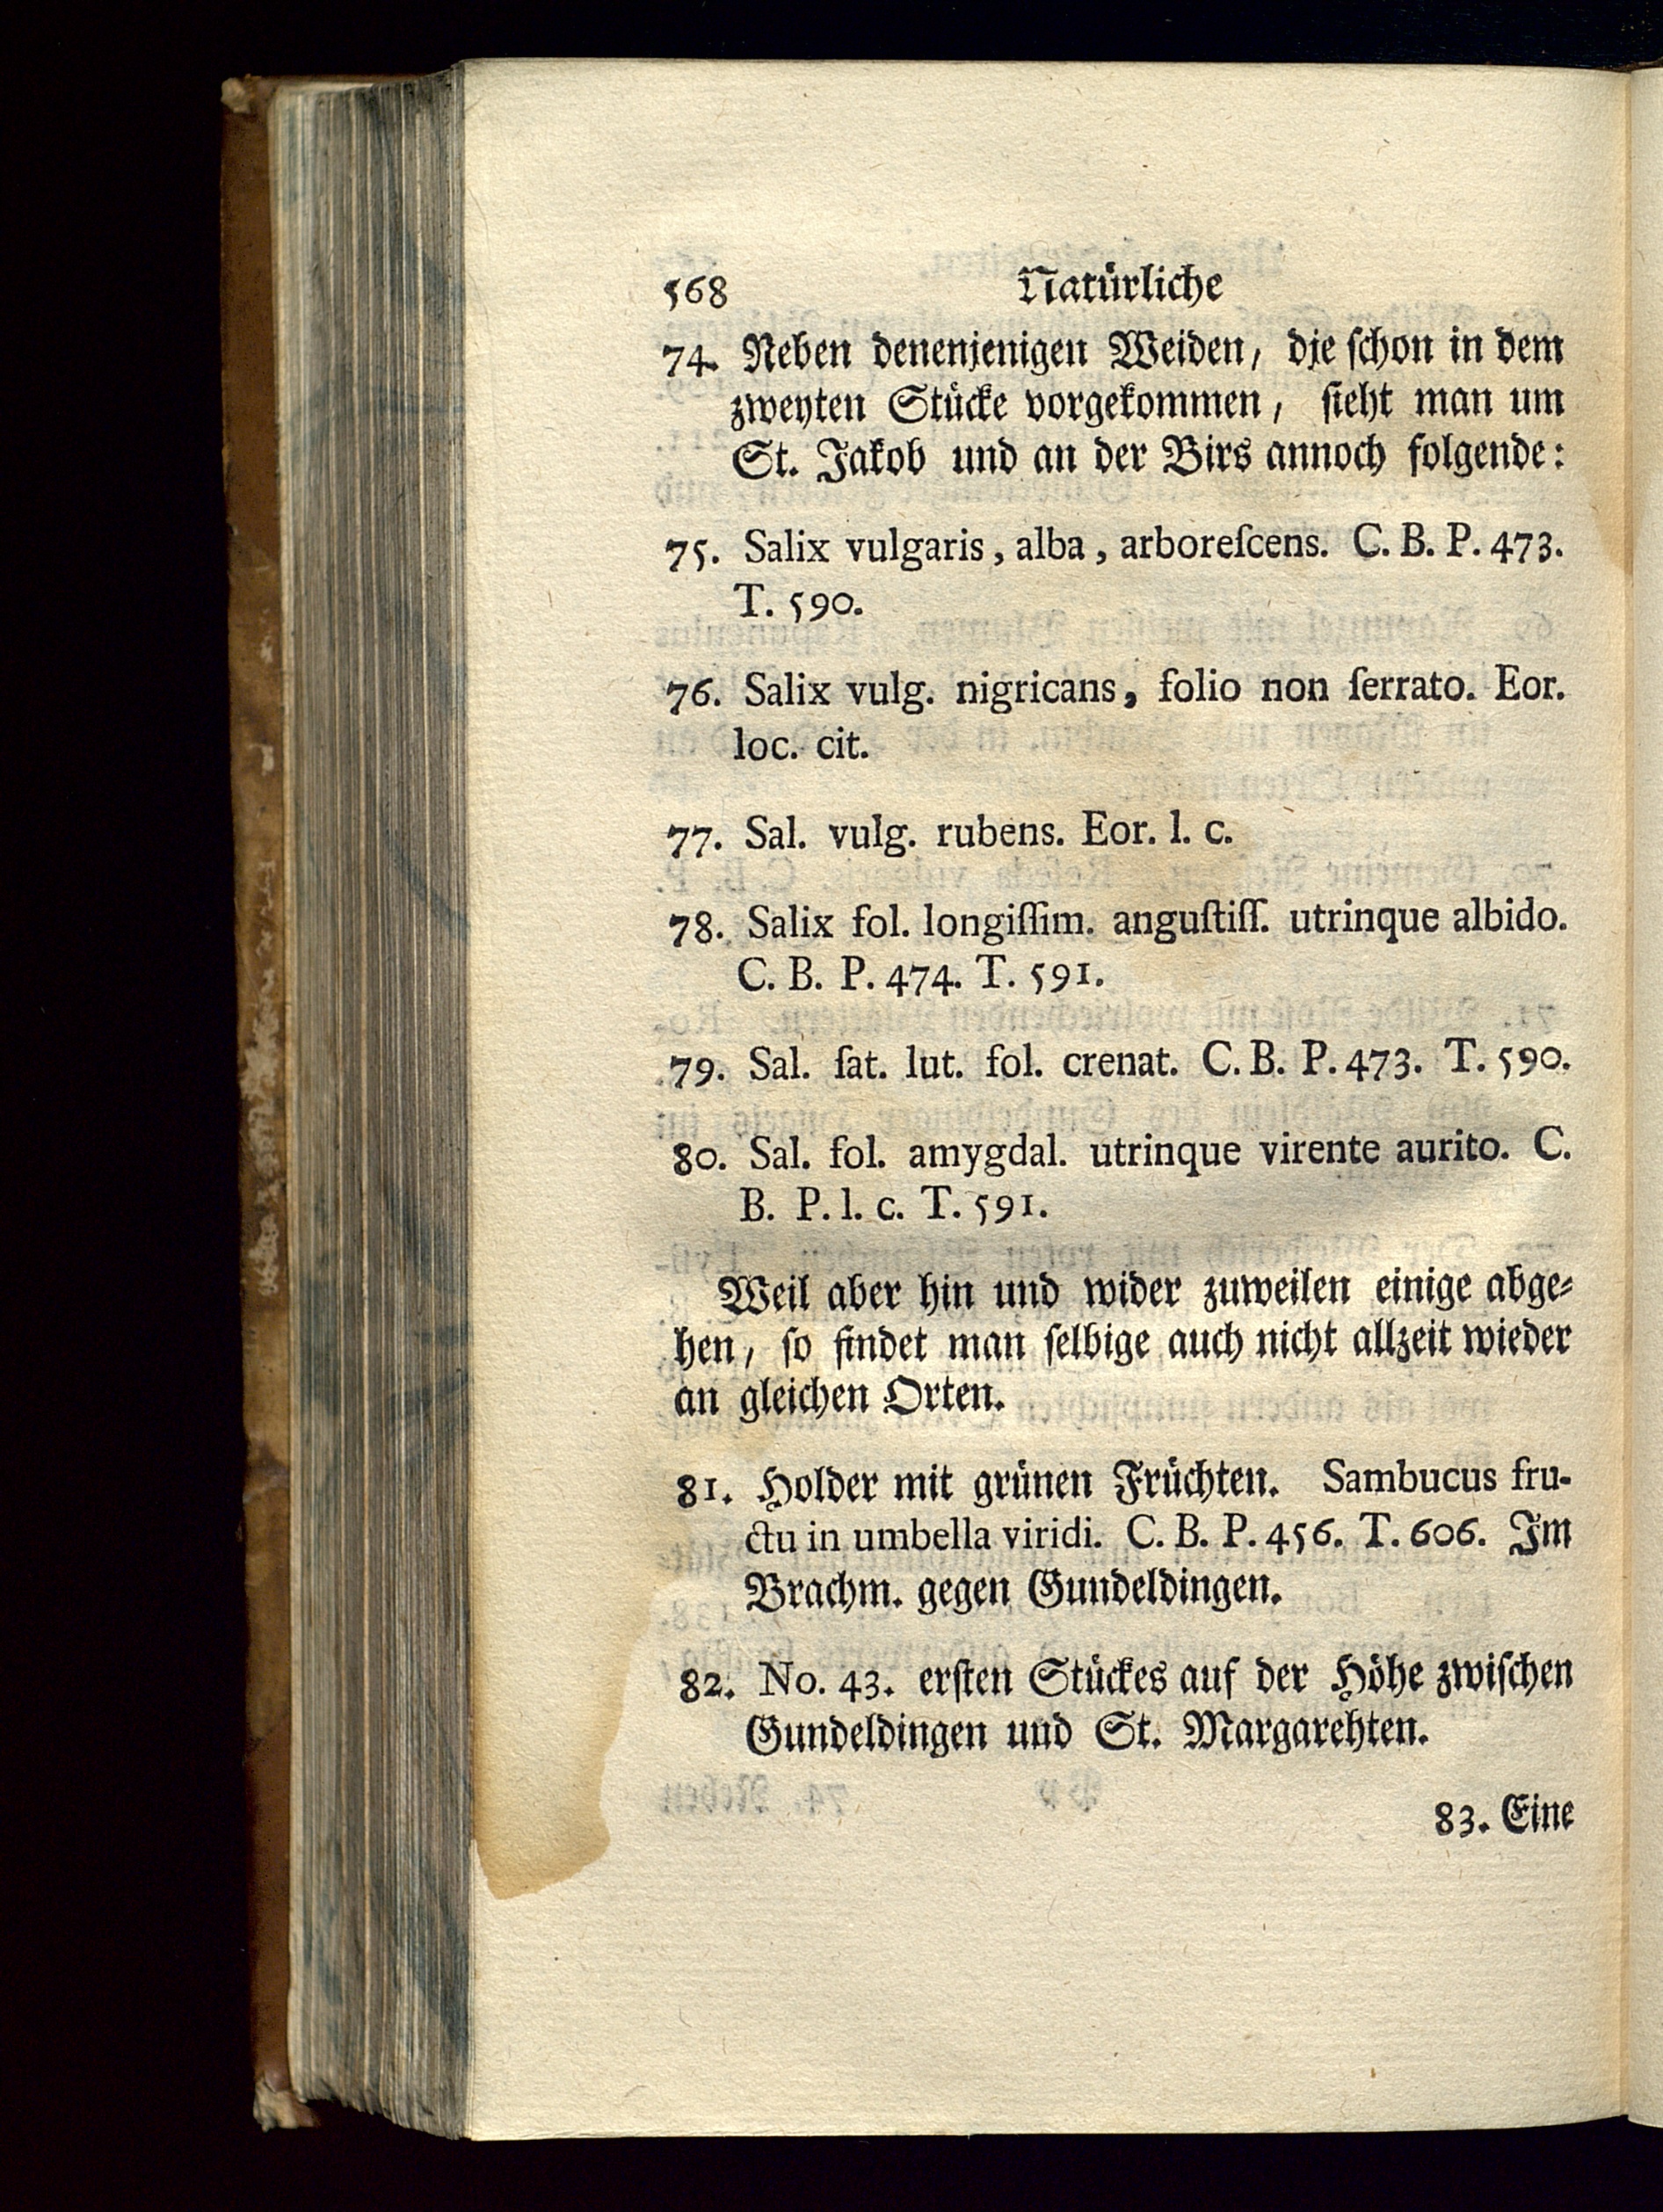 568 Natürliche
74. Neben denenjenigen Weiden, die ſchon in dem
zweyten Stücke vorgekommen, ſieht man um
St. Jakob und an der Birs annoch folgende:
75. Salix vulgaris, alba, arboreſcens. C. B. P. 473.
T. 590.
76. Salix vulg. nigricans, folio non ſerrato. Eor.
loc. cit.
77. Sal. vulg. rubens. Eor. l. c.
78. Salix fol. longiſſim. anguſtiſſ. utrinque albido.
C. B. P. 474. T. 591.
79. Sal. ſat. lut. fol. crenat. C. B. P. 473. T. 590.
80. Sal. fol. amygdal. utrinque virente aurito. C.
B. P. l. c. T. 591.
Weil aber hin und wider zuweilen einige abge-
hen, ſo findet man ſelbige auch nicht allzeit wieder
an gleichen Orten.
81. Holder mit grünen Früchten. Sambucus fru-
ctu in umbella viridi. C. B. P. 456. T. 606. Im
Brachm. gegen Gundeldingen.
82. No. 43. erſten Stückes auf der Höhe zwiſchen
Gundeldingen und St. Margarehten.
83. Eine